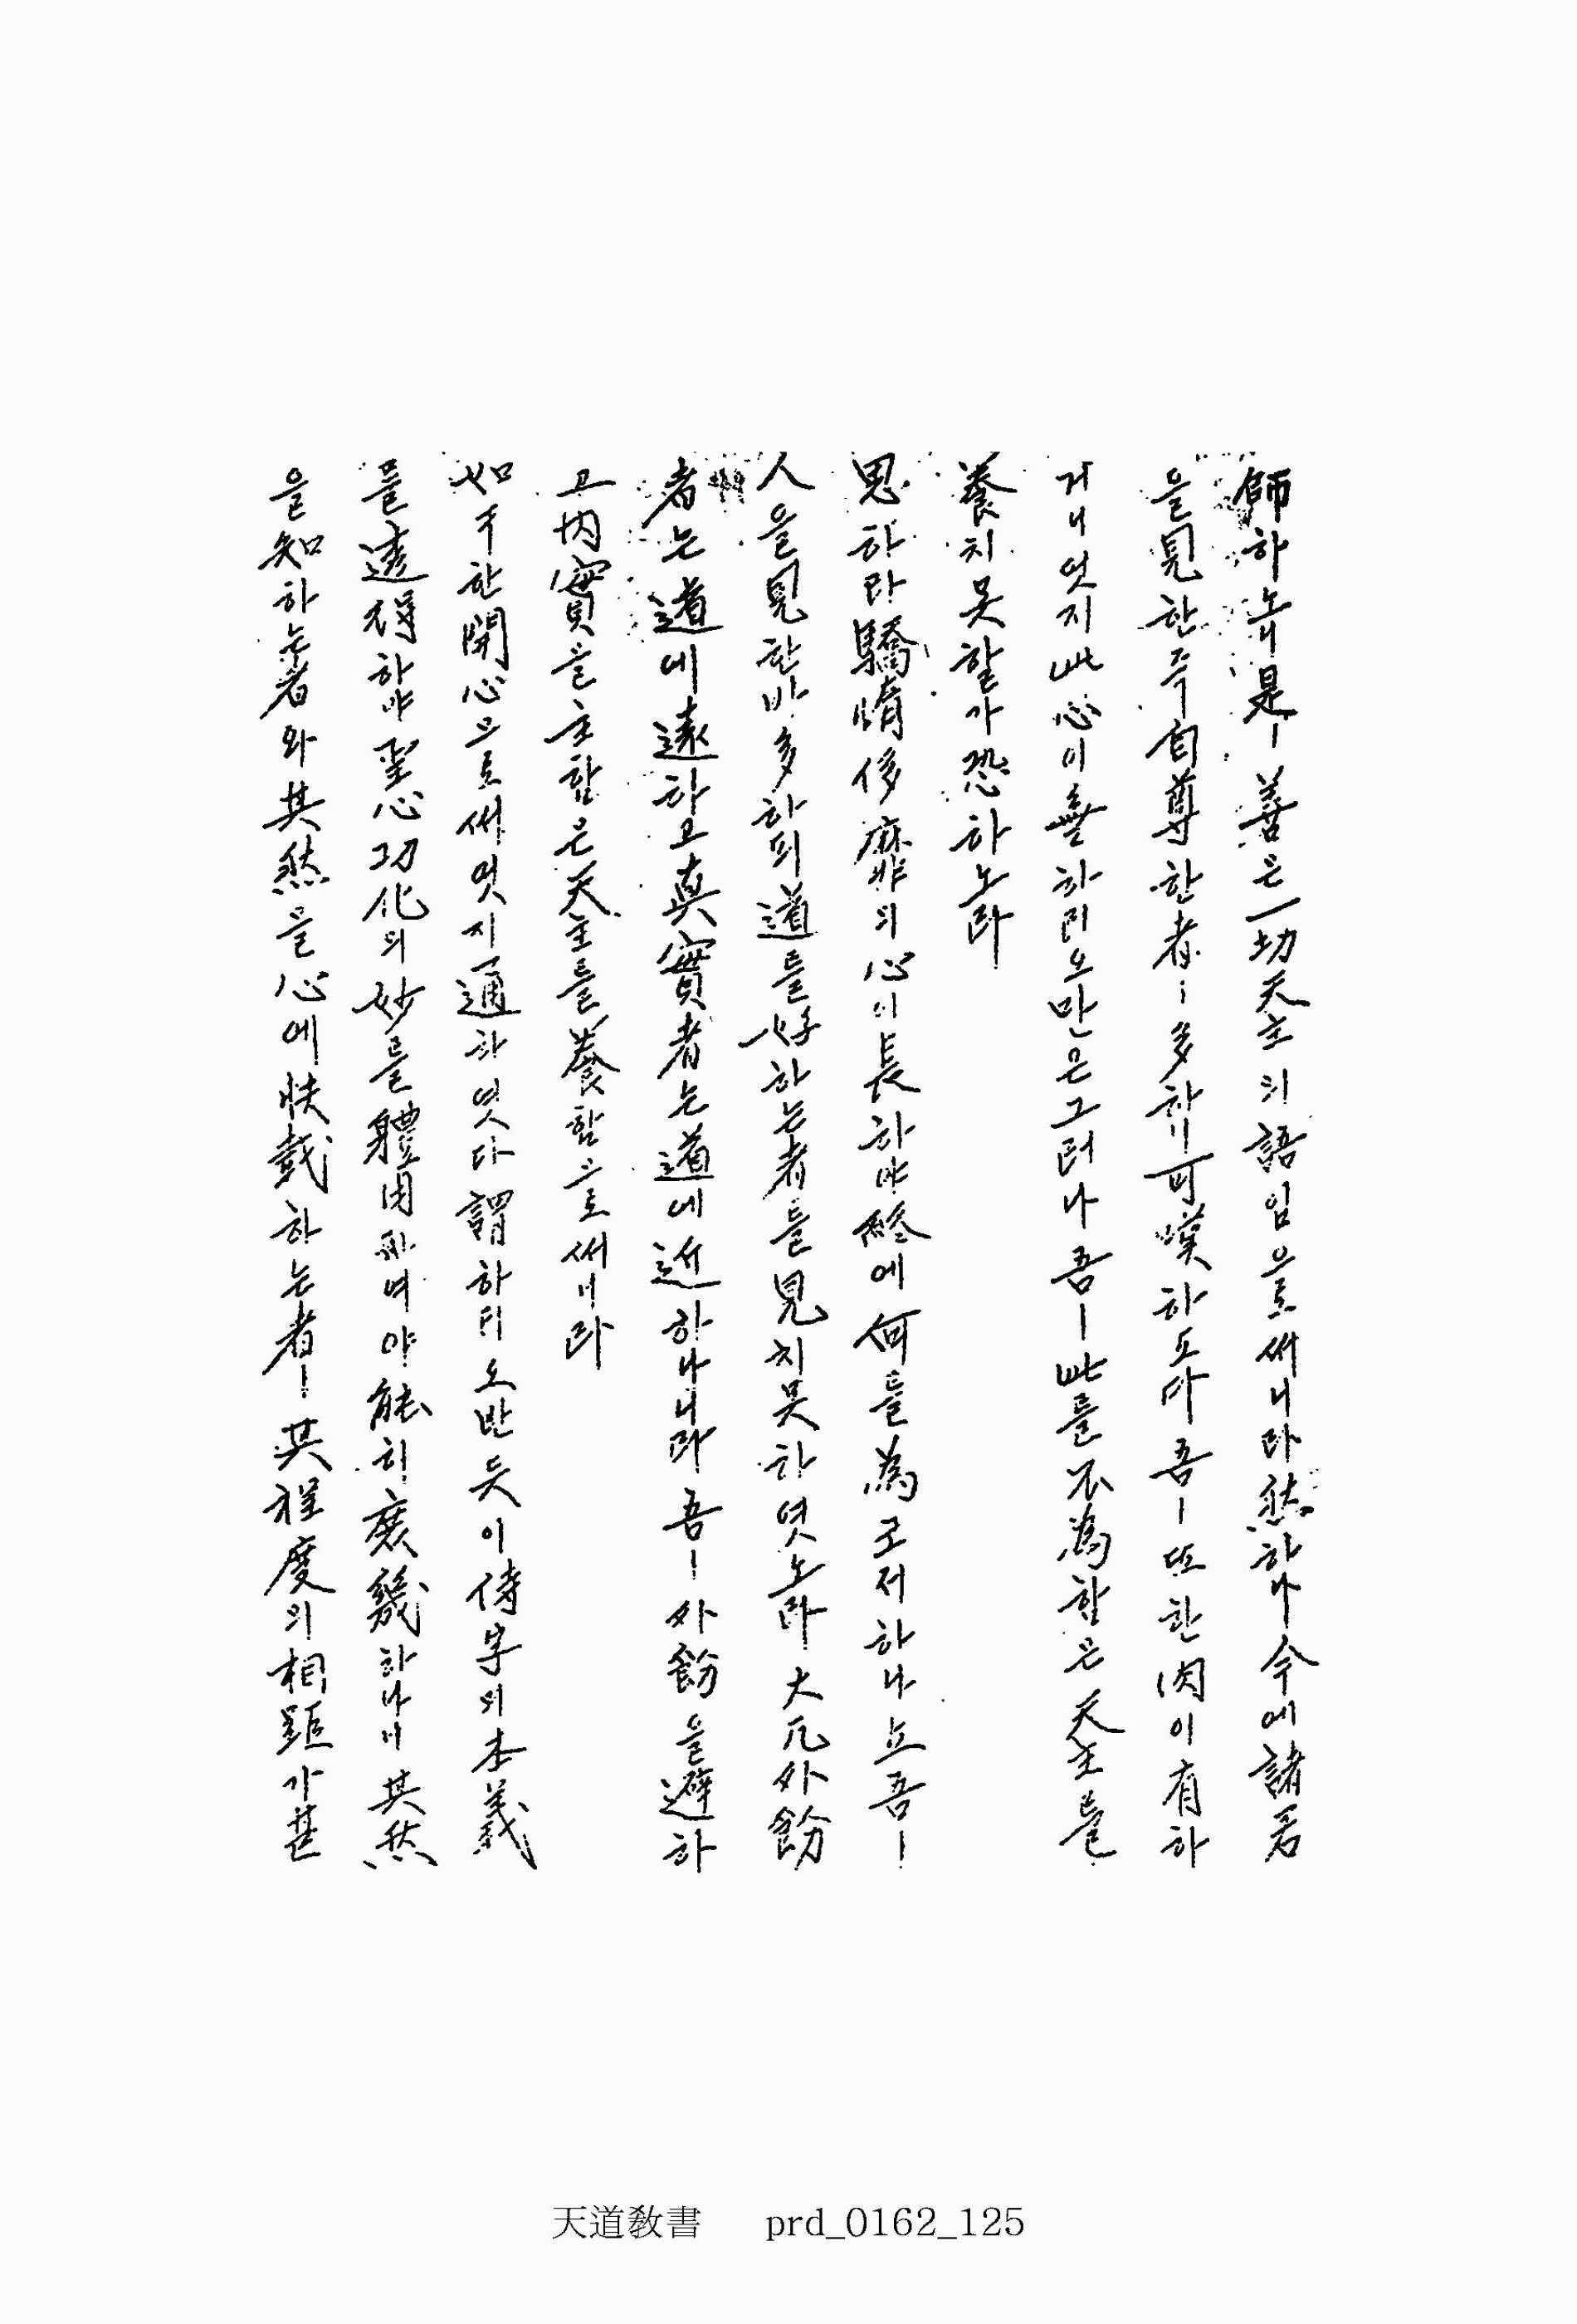 師하노니 是ㅣ 善은 一切 天主의 語임으로써니라 然하나 今에 諸君
을 見한즉 自尊한 者ㅣ 多하니 可嘆하도다 吾ㅣ 또한 肉이 有하
거니 엇지 此心이 無하리오만은 그러나 吾ㅣ 此를 不爲함은 天主를
養치 못할가 恐하노라
思하라 驕惰侈靡의 心이 長하야 終에 何를 爲코저 하나뇨 吾ㅣ
人을 見한바 多하되 道를 好하는 者를 見치 못하엿노라 大凡 外飾
者는 道에 遠하고 眞實者는 道에 近하나니라 吾ㅣ 外飾을 避하
고 內實을 主함은 天主를 養함으로써니라
如干한 開心으로써 엇지 通하엿다 謂하리오 반듯이 侍字의 本義
를 透得하야 聖心 功化의 妙를 體因하여야 能히 庶幾하나니 其然
을 知하는 者와 其然을 心에 快哉하는 者ㅣ 其 程度의 相距가 甚
天道敎書 prd_0162_125